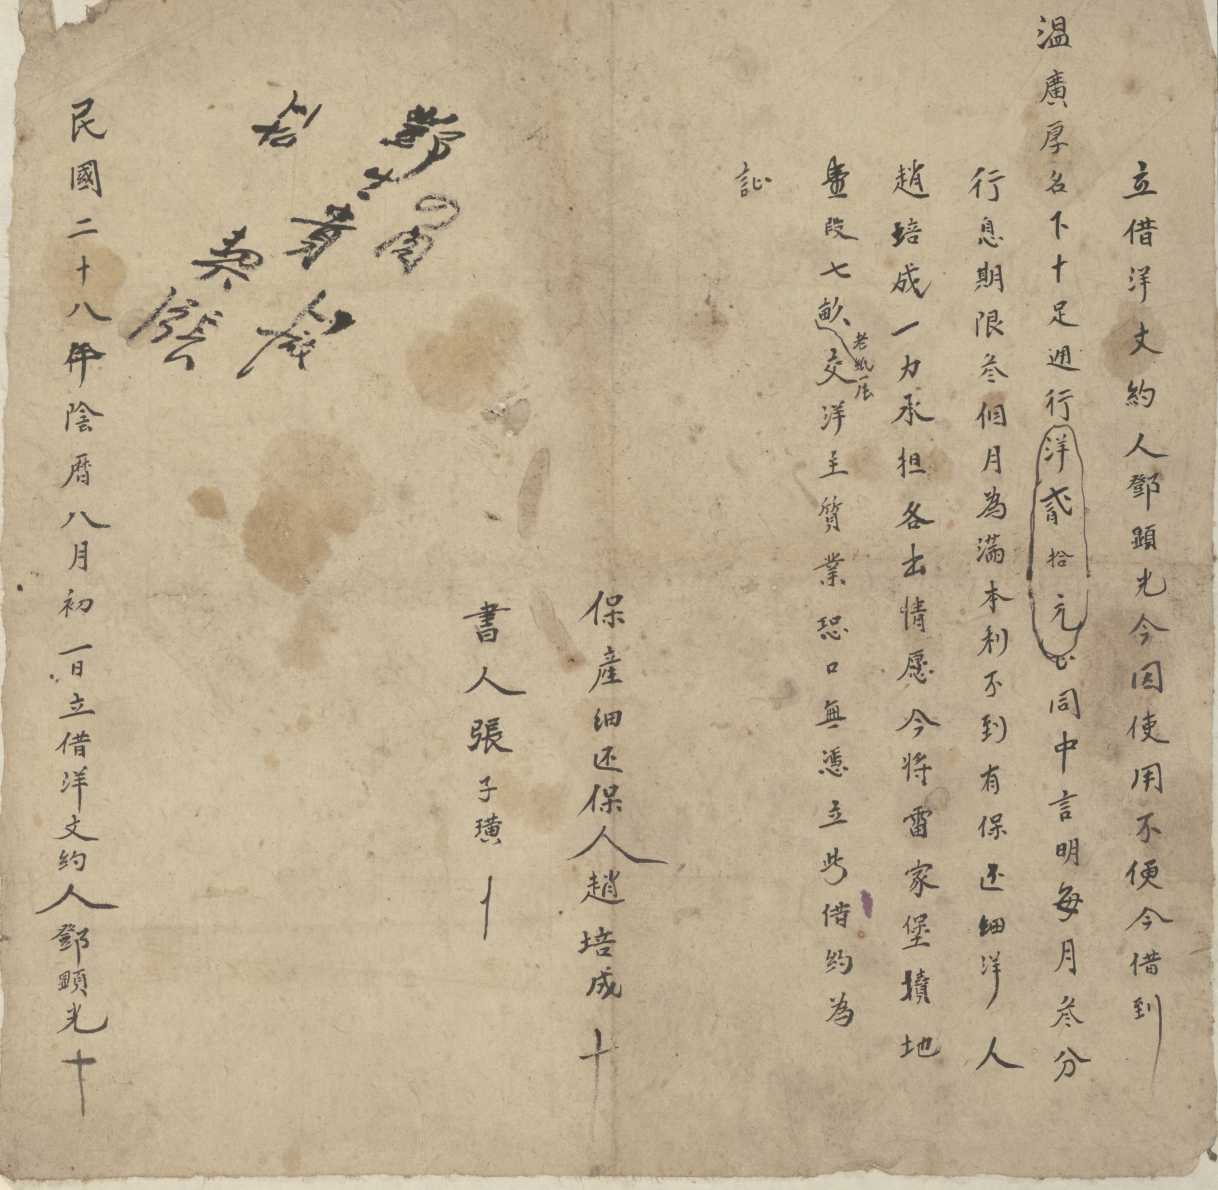 立借洋文約人鄧顕光今因使用不便今借到
温廣厚名下十足週行洋貳拾元正同中言明每月叁分
行息期限叁個月為滿本利不到有保还細洋人
趙培成一力承担各出情愿今將雷家堡墳地
壹段七畝交洋主質業恐口無憑立此借約為
老紙一张
証
保産細还保人趙培成 十
書人張子璜
民國二十八年陰曆八月初一日立借洋文约人鄧顕光 十